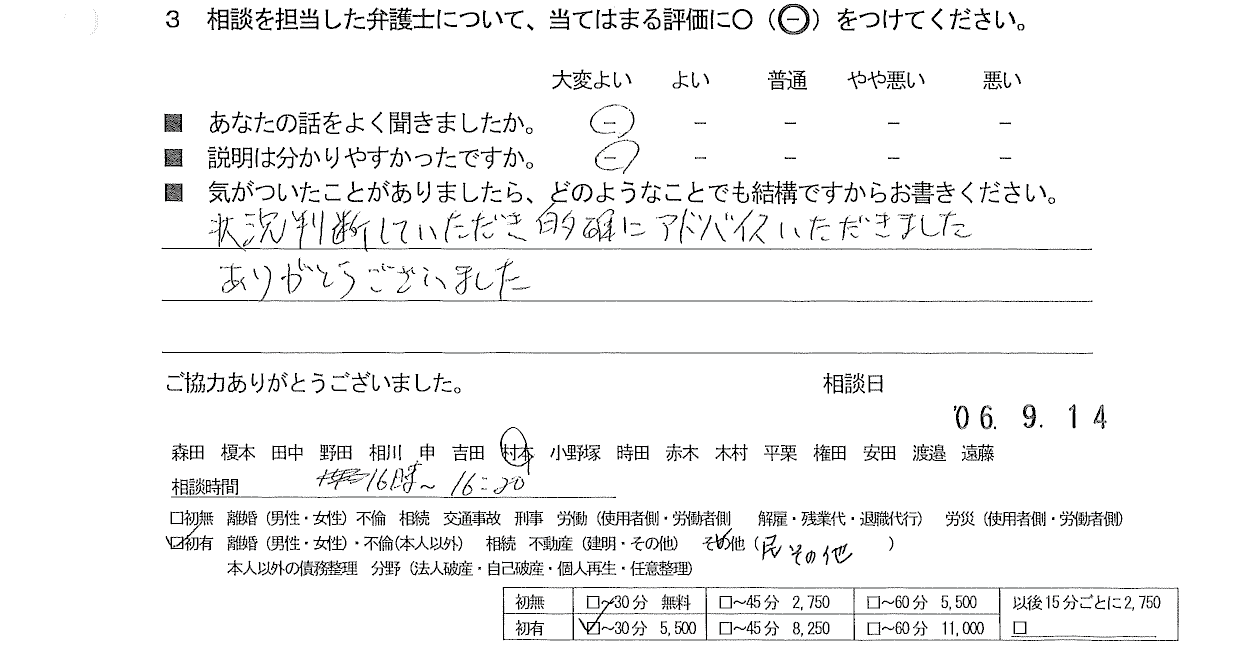 3 相談を担当した弁護士について、当てはまる評価に○（㊀）をつけてください。
大変よい よい 普通 やや悪い 悪い
■ あなたの話をよく聞きましたか。 － － － － －
■ 説明は分かりやすかったですか。 － － － － －
■ 気がついたことがありましたら、どのようなことでも結構ですからお書きください。
状況判断していただき的確にアドバイスいただきました
ありがとうございました
ご協力ありがとうございました。 相談日
'06. 9. 14
森田 榎本 田中 野田 相川 申 吉田 村本 小野塚 時田 赤木 木村 平栗 権田 安田 渡邉 遠藤
相談時間 16時～ 16:20
□初無 離婚（男性・女性）不倫 相続 交通事故 刑事 労働（使用者側・労働者側 解雇・残業代・退職代行） 労災（使用者側・労働者側）
□初有 離婚（男性・女性）・不倫(本人以外) 相続 不動産（建明・その他） その他（民その他 ）
本人以外の債務整理 分野（法人破産・自己破産・個人再生・任意整理）
初無 □～30分 無料 □～45分 2,750 □～60分 5,500 以後15分ごとに2,750
初有 □～30分 5,500 □～45分 8,250 □～60分 11,000 □